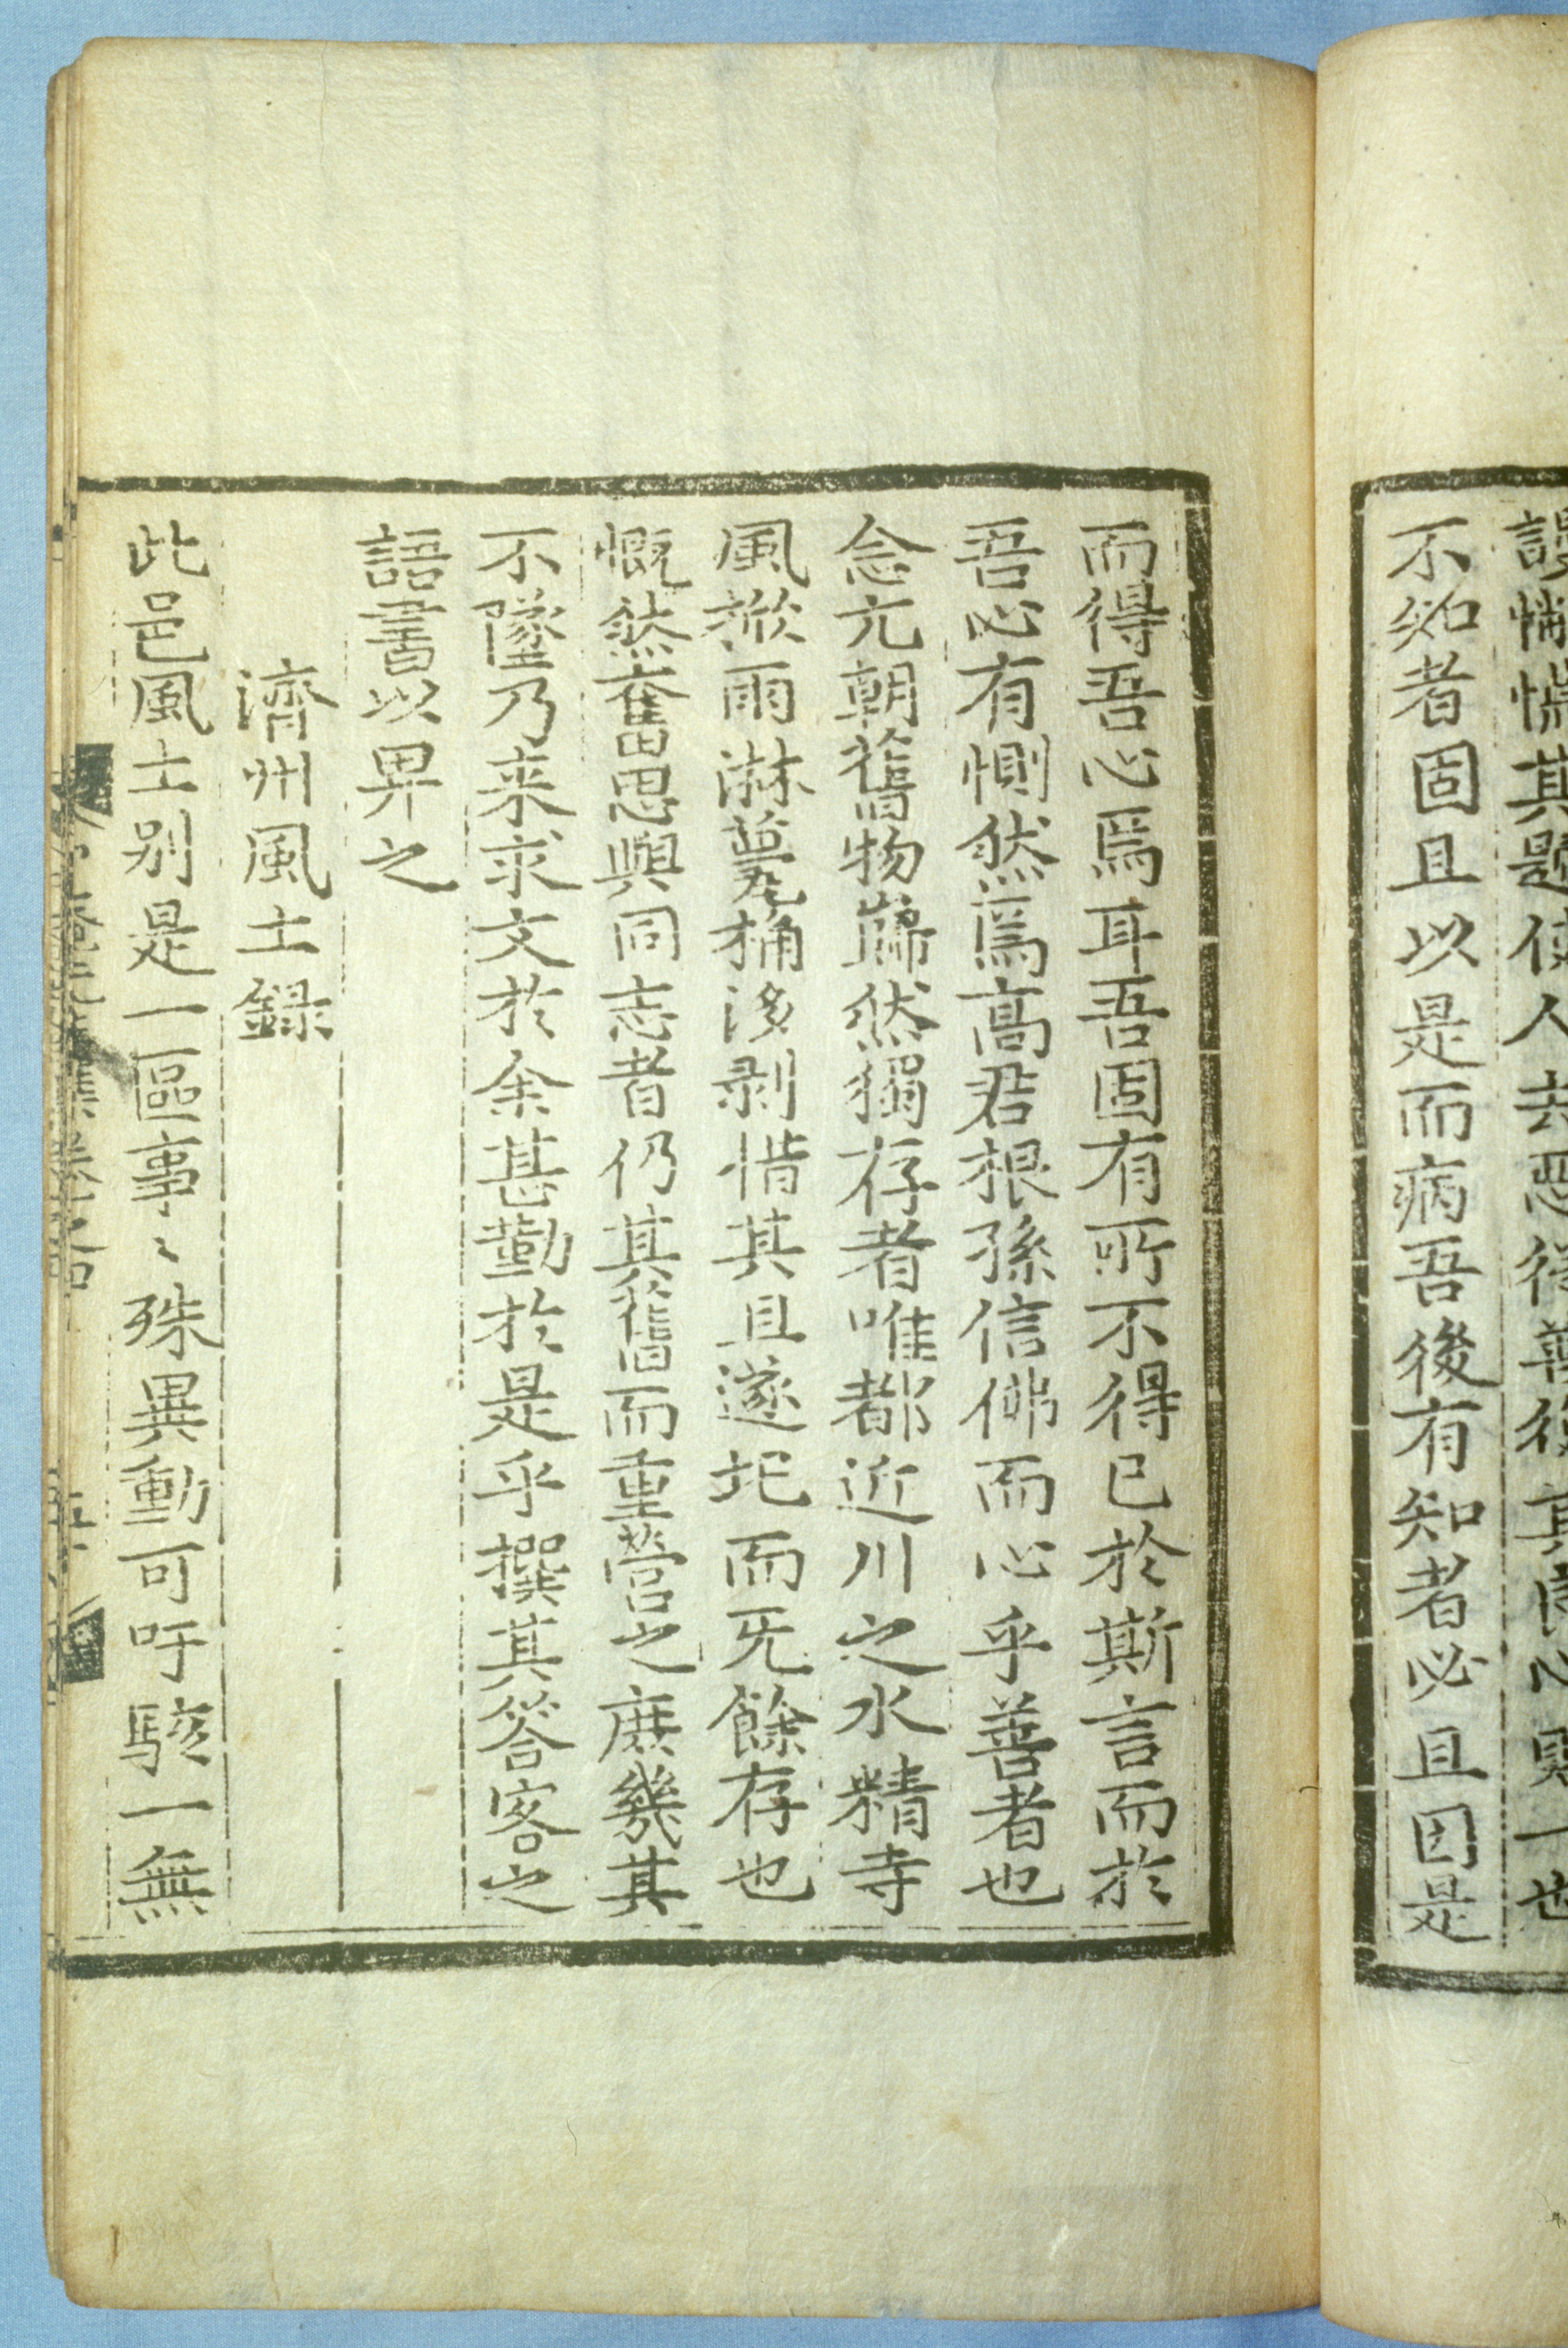 不知者固且以是而病吾後有知者必且因是
而得吾心焉耳吾固有所不得已於斯言而於
吾必有惻然焉高君根孫信佛而心乎善者也
念元朝舊物巋然獨存者唯都近川之水精寺
風漎雨淋甍桷淰剥惜其且遂圮而旡餘存也
慨然奮思與同志者仍其舊而重營之庶幾其
不墜乃来求文於余甚勤於是乎撰其答客之
語書以畀之
濟州風土録
此邑風土別是一區事〻殊異動可吁駭一無